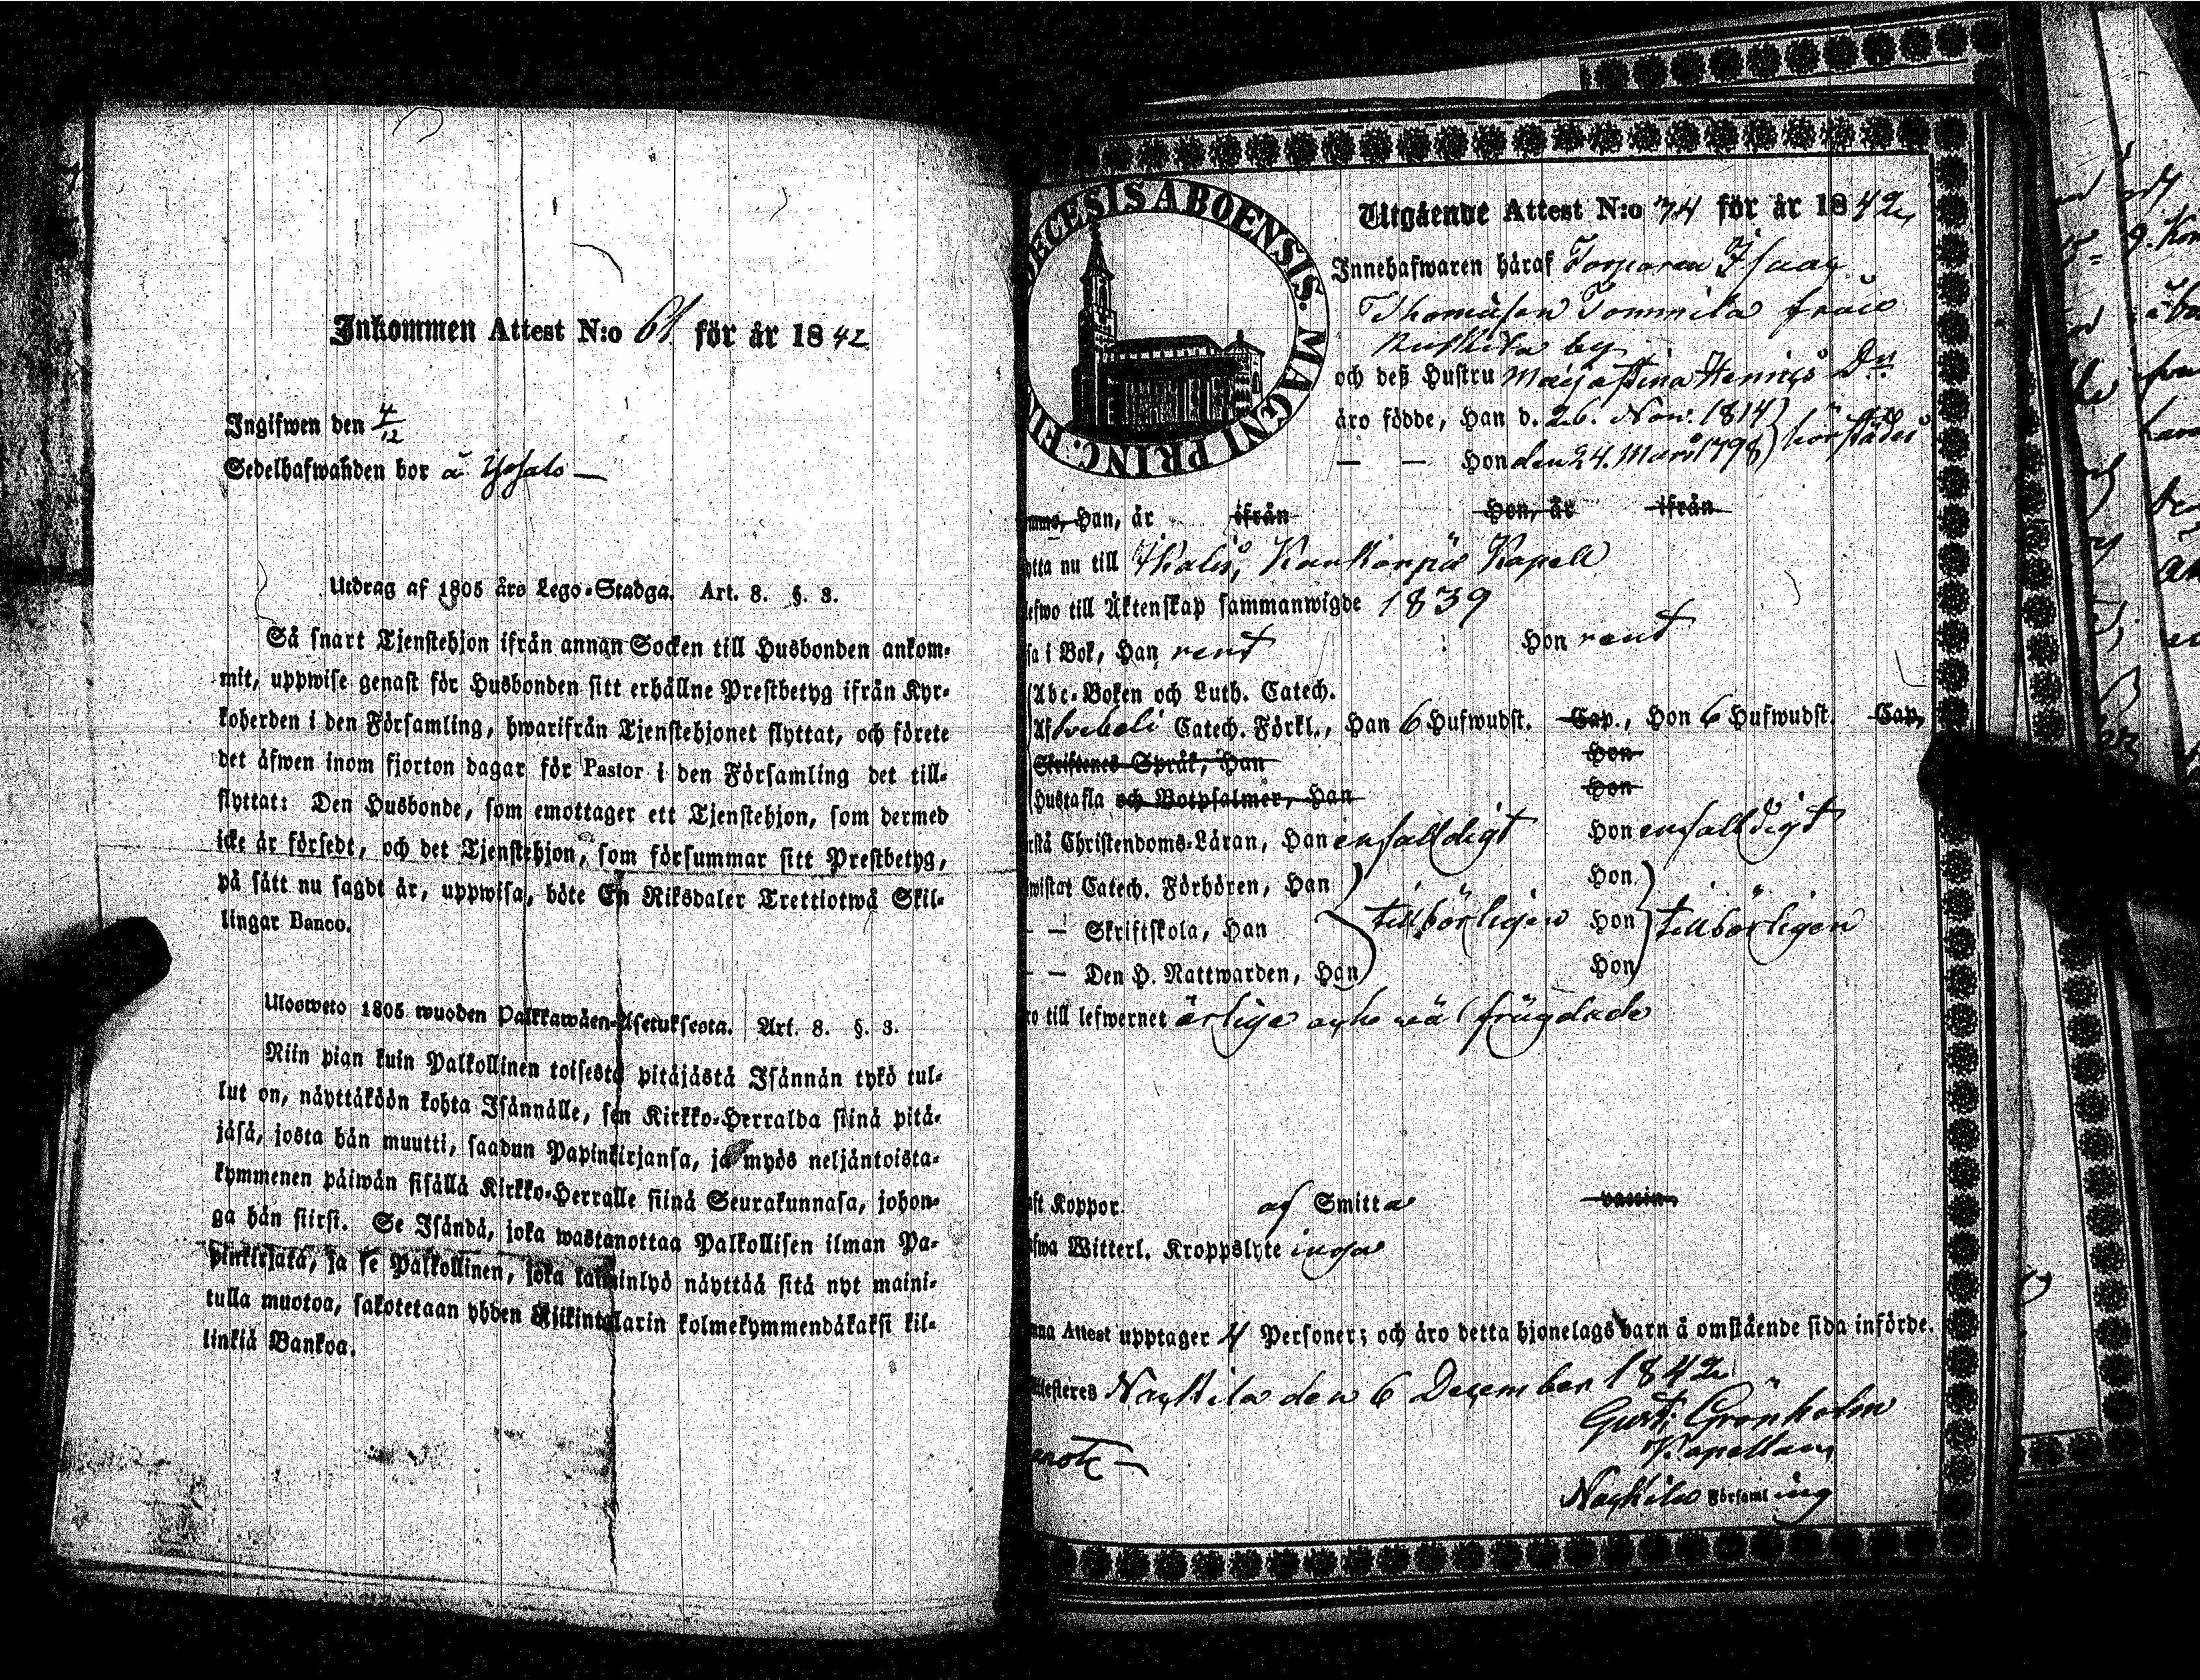 Inkommen Attest N:o 61 för år 1842
Ingifwen den 4/12
Sedelhafwanden bor å
Utdrag af 1805 års Lego-Stadga. Art. 8. §. 3.
Så snart Tjenstehjon ifrån annan Socken till Husbonden ankom-
mit, uppwise genast för Husbonden sitt erhållne Prestbetyg ifrån Kyr-
koherden i den Församling, hwarifrån Tjenstehjonet flyttat, och förete
det äfwen inom fjorton dagar för Pastor i den Församling det till-
flyttat: Den Husbonde, som emottager ett Tjenstehjon, som dermed
icke är försedt, och det Tjenstehjon, som försummar sitt Prestbetyg,
på sätt nu sagdt är, uppwisa, böte En Riksdaler Trettiotwå Skil-
lingar Banco.
Ulosweto 1805 wuoden Palkkawäen-Asetuksesta. Art. 8. §. 3.
Niin pian kuin Palkollinen toisesta pitäjästä Isännän tykö tul-
lut on, näyttäköön kohta Isännälle, sen Kirkko-Herralda siinä pitä-
jäsä, josta hän muutti, saadun Papinkirjansa, ja myös neljäntoista-
kymmenen päiwän sisällä Kirkko-Herralle siinä Seurakunnasa, johon-
ga hän siirsi. Se Isändä, joka wastanottaa Palkollisen ilman Pa-
pinkirjata, ja se Palkollinen, joka laiminlyö näyttää sitä nyt maini-
tulla muotoa, sakotetaan yhden Riikintalarin kolmekymmendäkaksi kil-
linkiä Bankoa.
DIŒCESIS ABOENSIS. MAGNI PRINC. FI
Utgående Attest N:o 74 för år 1842,
Innehafwaren häraf Torparen Isaac
Thomasson Tommila från
by
och deß Hustru Maja Stina Henrics Dr
äro födde, Han d. 26. Nov. 1814 härstädes
— — Hon den 24. Mars 1798
Han, är ifrån Hon, är ifrån
tta nu till Ikalis, Kankaanpä Kapell
efwo till Äktenskap sammanwigde 1839
sa i Bok, Han rent Hon rent
Abc-Boken och Luth. Catech.
Af Svebeli Catech. Förkl., Han 6 Hufwudst. Cap., Hon 6 Hufwudst. Cap.
Skriftenes Språk, Han Hon
Hustafla och Botpsalmer, Han Hon
rstå Christendoms-Läran, Han enfalldigt Hon enfalldigt
wistat Catech. Förhören, Han Hon
— — Skriftskola, Han tillbörligen Hon tillbörligen
— — Den H. Nattwarden, Han Hon
ro till lefwernet ärlige och wäl frägdade
ft Koppor. af Smitta vaccin.
fwa Witterl. Kroppslyte inga
nna Attest upptager 4 Personer; och äro detta hjonelags barn å omstående sida införde.
ttesteres Nackila den 6 December 1842
Gust: Grönholm
Kapellan,
Nackila Församling